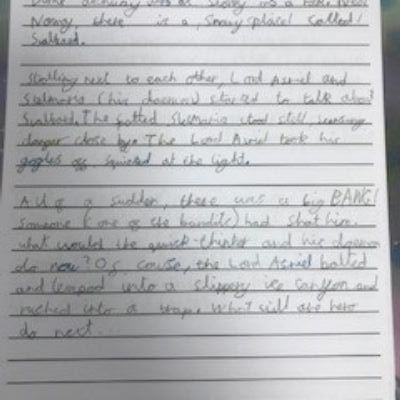 Norway, there is a, snowy place called/
Svalbard.
strolling next to each other, Lord Asriel and
Stelmaria (his daemon) started to talk about
Svalbard. The stood still, sensing
danger close by. The Lord Asriel took his
goggles off, squinted at the light.
All of a sudden, there was a big BANG!
Someone (one of the bandits) had shot him.
What would the quick-thinker and his daemon
do now? Of couse, the Lord Asriel bolted
and leaped into a slippery ice canyon and
rushed into a trap. What will are hero
do next...